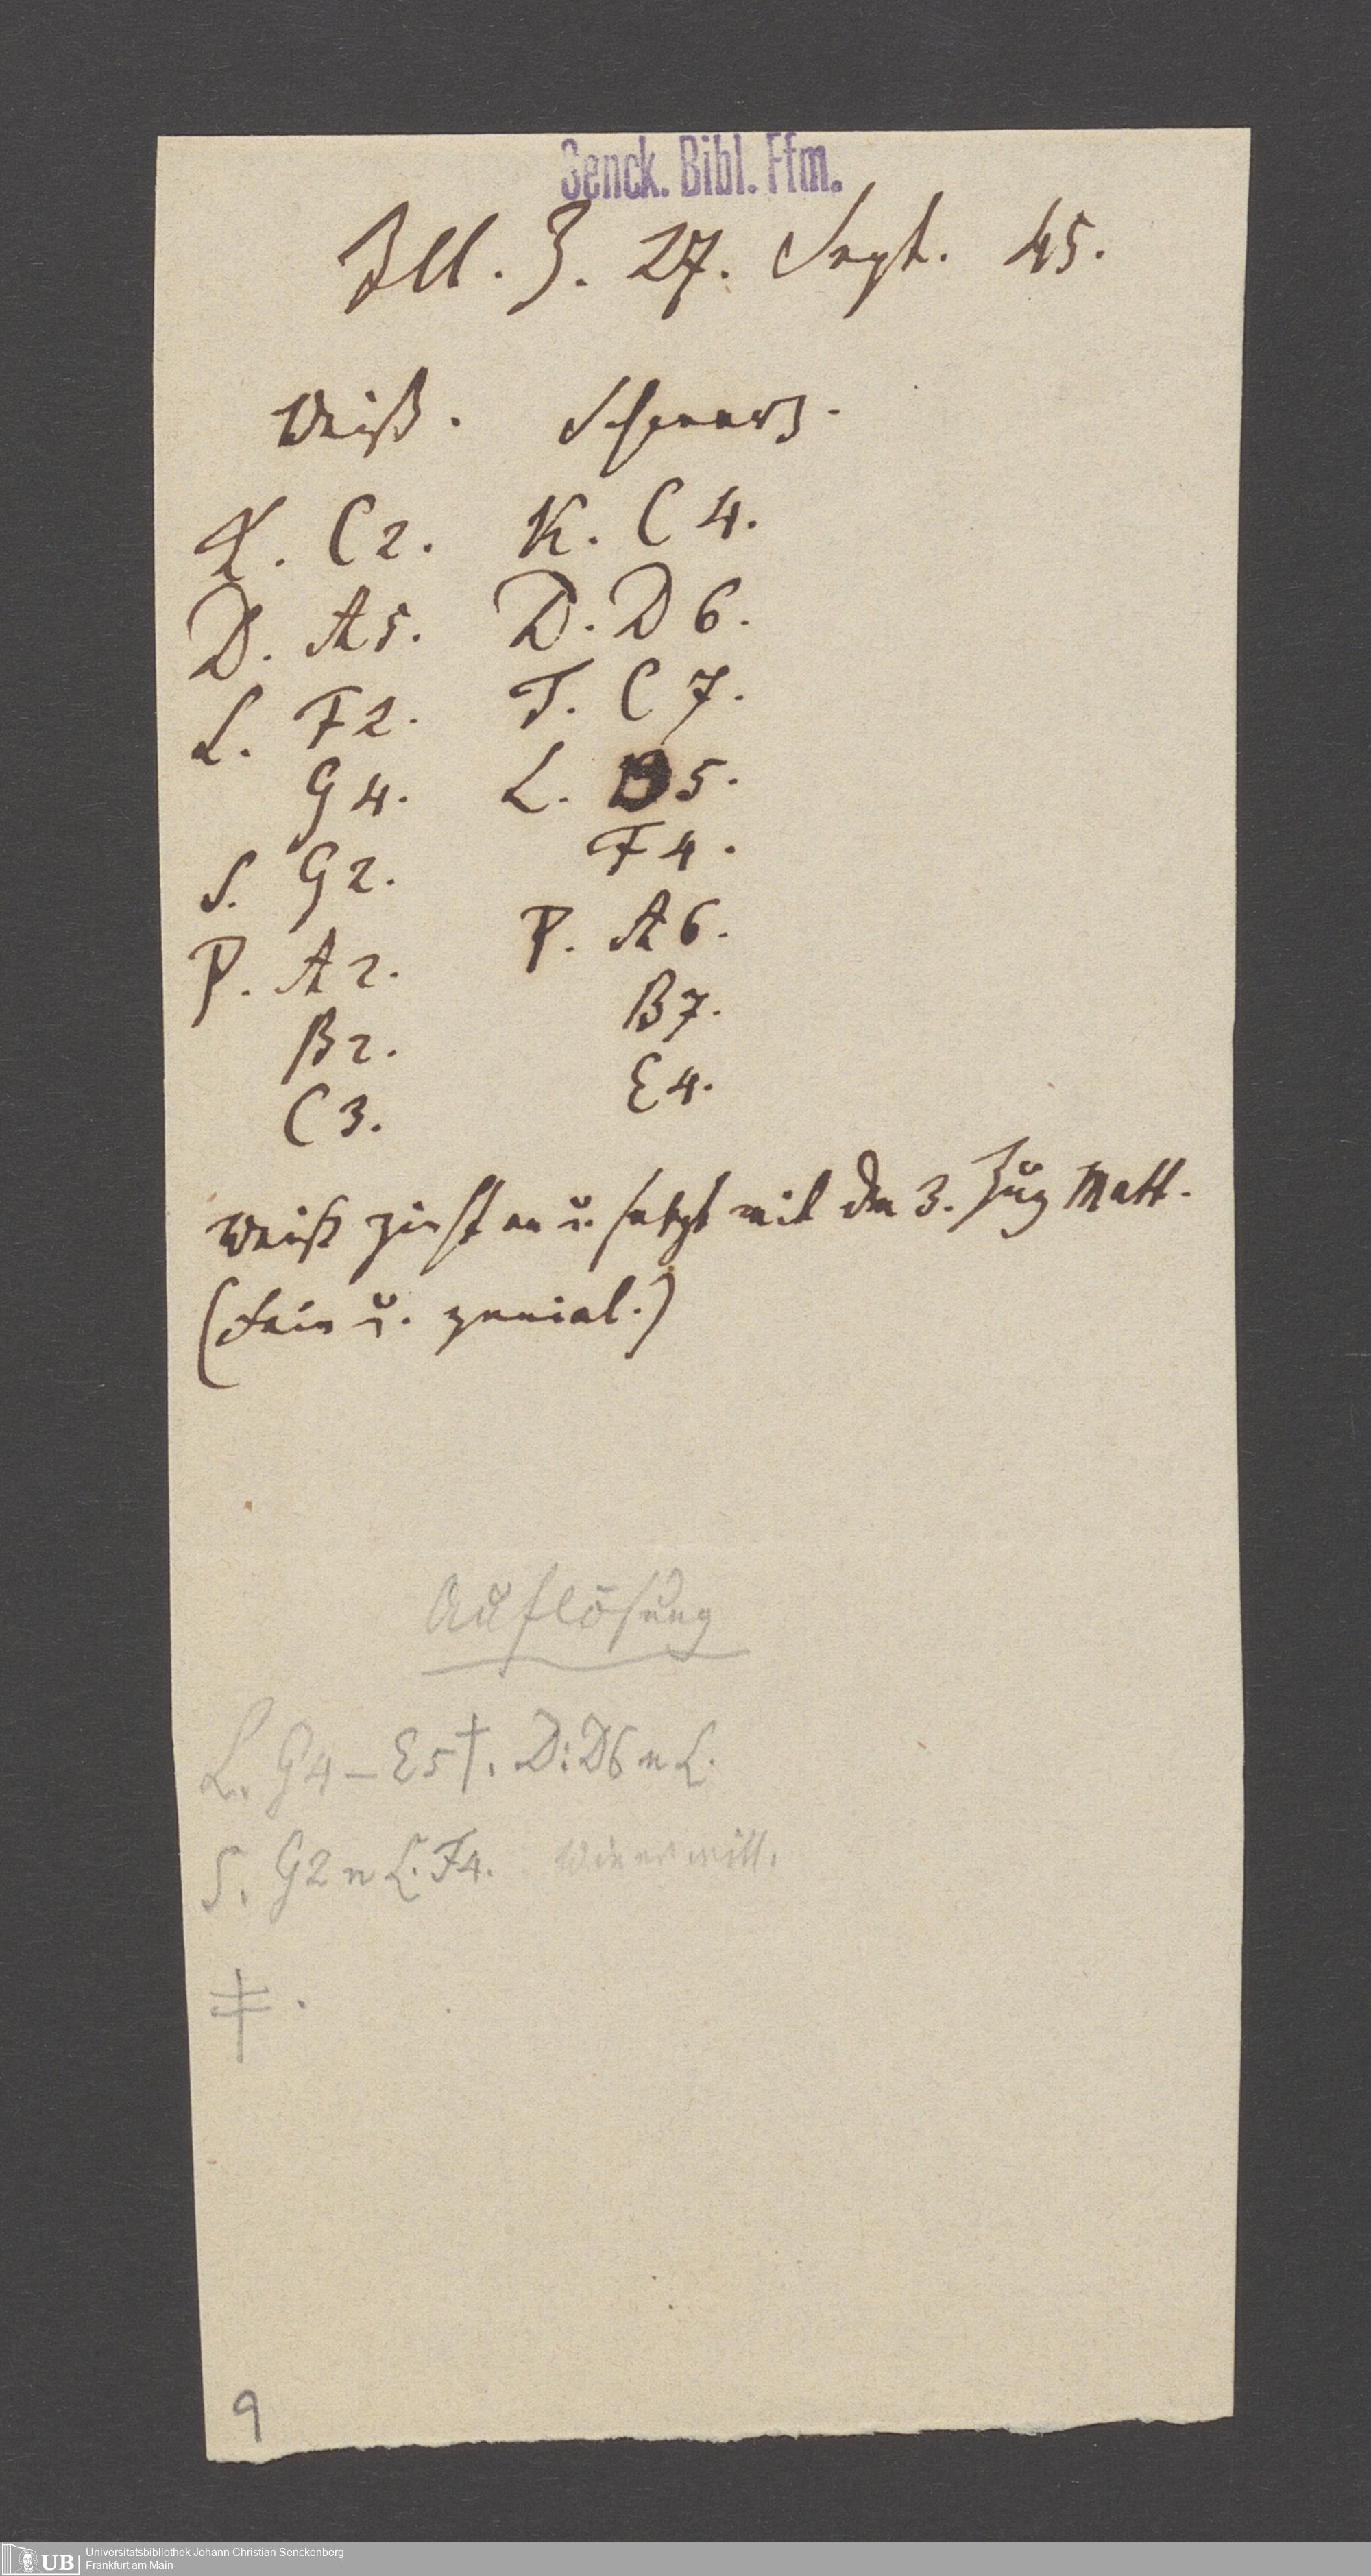 Senck. Bibl. Ffm.
Ill. Z. 27. Sept. 45.
Weiß. Schwarz.
K. C 2. K. C 4.
D. A 5. D. D 6.
L. F 2. T. C 7.
G 4. L. D 5.
S. G 2. F 4.
P. A 2. P. A 6.
B 2. B 7.
C 3. E 4.
Weiß zieht an u. setzt mit dem 3. Zug Matt.
(Fein u. genial.)
Auflösung
L. G4 – E5†. D: D6 n L.
S. G2 n L. F4. Wie er will.
‡.
9
UB Universitätsbibliothek Johann Christian Senckenberg
Frankfurt am Main